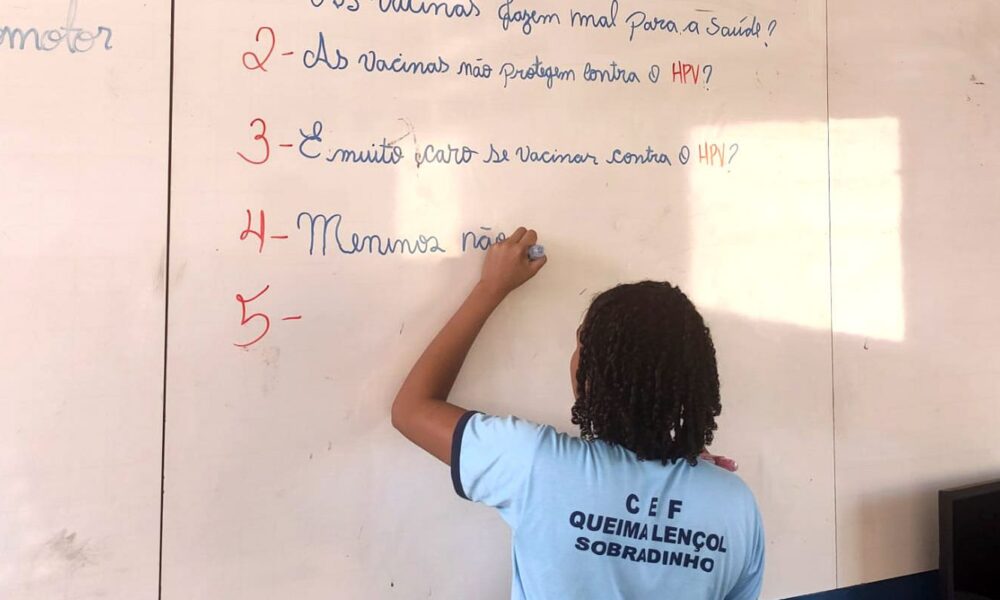 vacinas fazem mal para a saúde?
motor
2- As vacinas não protegem contra o HPV?
3- É muito caro se vacinar contra o HPV?
4- Meninos não
5-
CEF
QUEIMA LENÇOL
SOBRADINHO